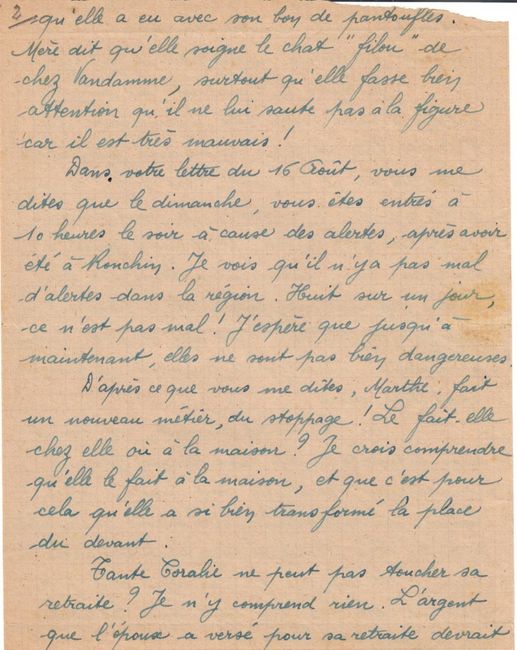 2/ qu'elle a eu avec son bon de pantoufles.
Meré dit qu'elle soigne le chat "filou" de
chez Vandamme, surtout qu'elle fasse bien
attention qu'il ne lui saute pas à la figure
car il est très mauvais !
Dans votre lettre du 16 Août, vous me
dites que le dimanche, vous êtes entrés à
10 heures le soir à cause des alertes, après avoir
été à Ronchin. Je vois qu'il n'y a pas mal
d'alertes dans la région. Huit sur un jour,
ce n'est pas mal ! J'espère que jusqu'à
maintenant, elles ne sont pas bien dangereuses.
D'après ce que vous me dites, Marthe, fait
un nouveau métier, du stoppage ! Le fait-elle
chez elle où à la maison ? Je crois comprendre
qu'elle le fait à la maison, et que c'est pour
cela qu'elle a si bien transformé la place
du devant.
Tante Coralie ne peut pas toucher sa
retraite ? Je n'y comprend rien. L'argent
que l'épouse a versé pour sa retraite devrait